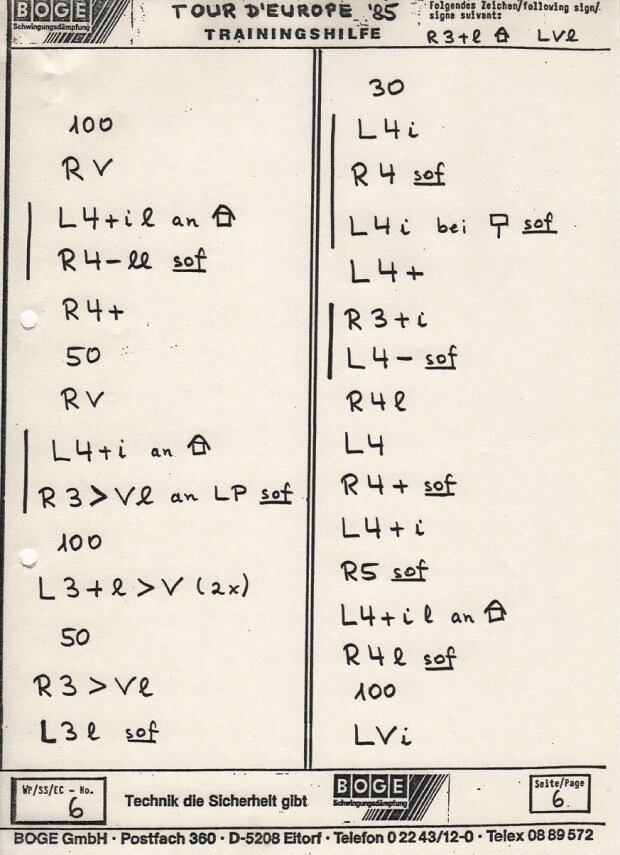 BOGE
Schwingungsdämpfung
TOUR D'EUROPE '85
TRAININGSHILFE
Folgendes Zeichen/following sign/
signe suivant:
R3+l ⌂ LVl
100
RV
L4+il an ⌂
R4-ll sof
R4+
50
RV
L4+i an ⌂
R3>Vl an LP sof
100
L3+l>V (2x)
50
R3>Vl
L3l sof
30
L4i
R4 sof
L4i bei sof
L4+
R3+i
L4- sof
R4l
L4
R4+ sof
L4+i
R5 sof
L4+il an ⌂
R4l sof
100
LVi
WP/SS/EC - No.
6
Technik die Sicherheit gibt
BOGE
Schwingungsdämpfung
Seite/Page
6
BOGE GmbH · Postfach 360 · D-5208 Eitorf · Telefon 0 22 43/12-0 · Telex 08 89 572